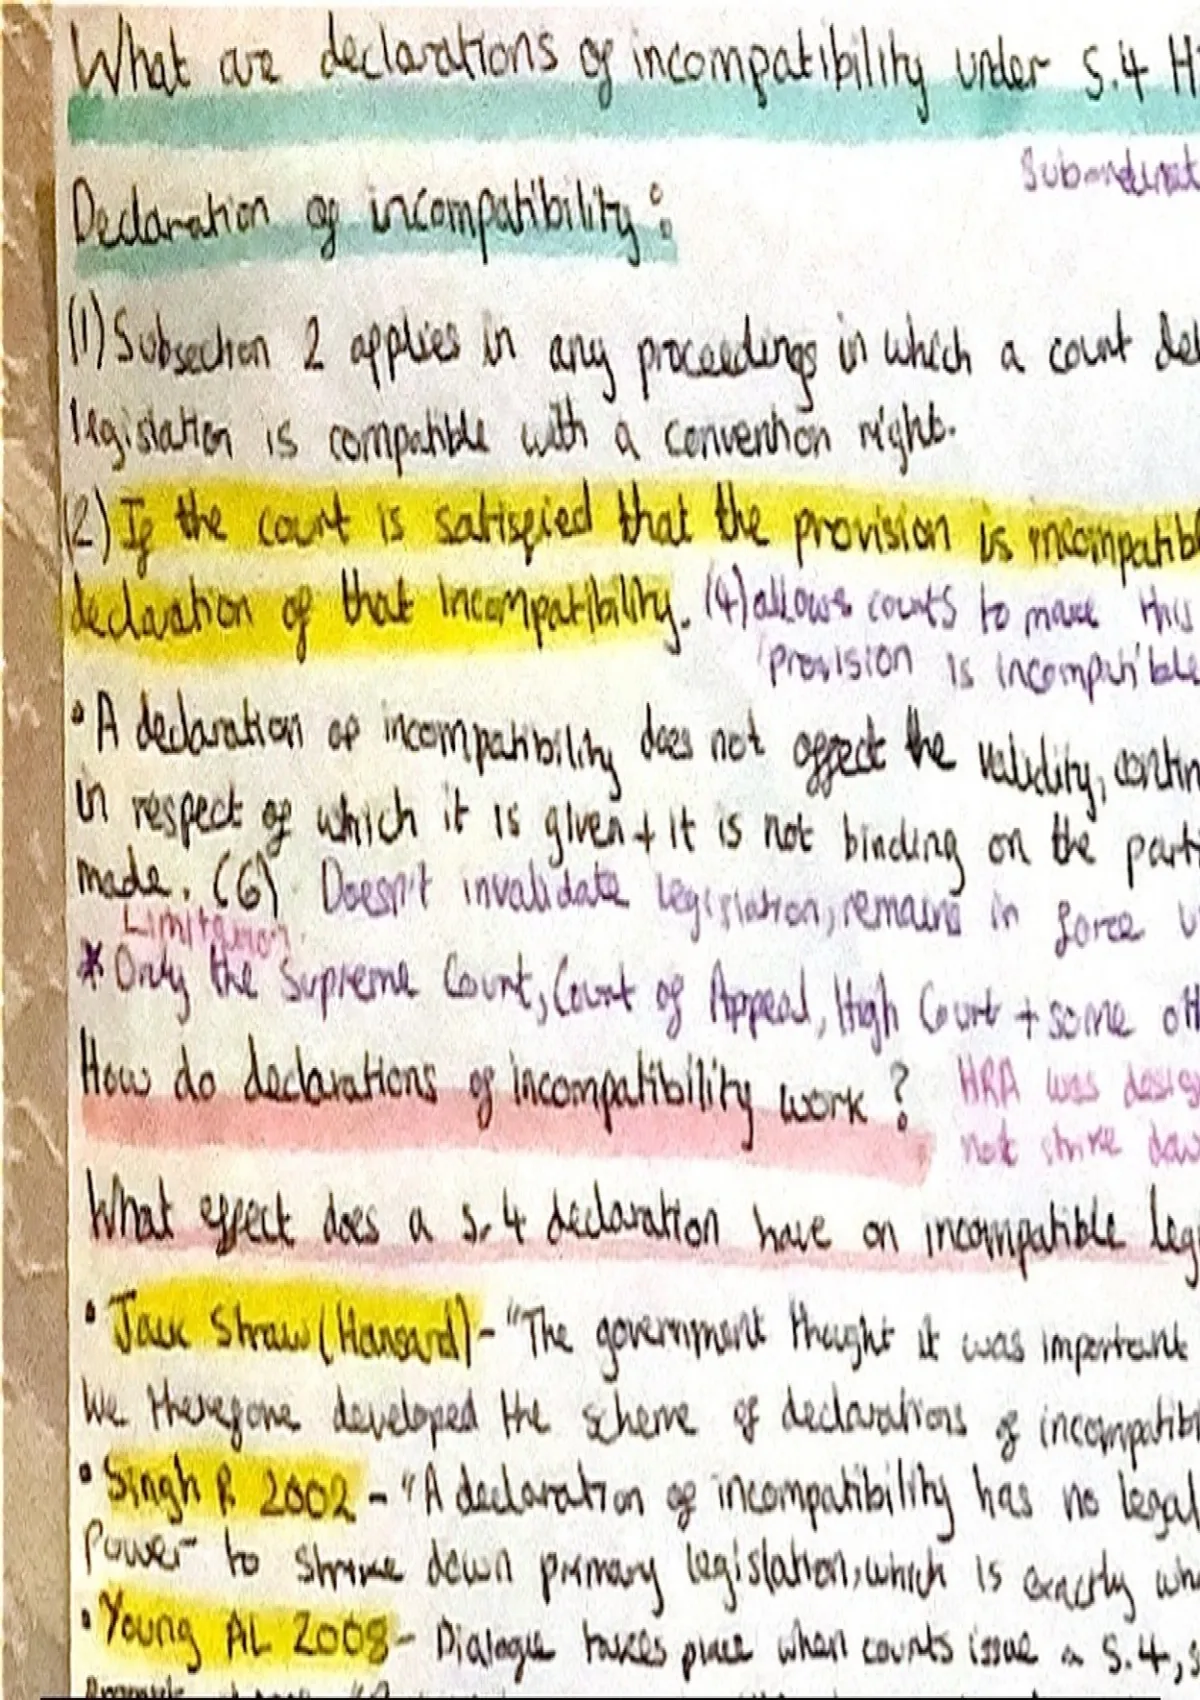 What are declarations of incompatibility under S.4 H
Subordinat
Declaration of incompatibility:
(1) Subsection 2 applies in any proceedings in which a court det
legislation is compatible with a convention right.
(2) If the court is satisfied that the provision is incompatib
declaration of that incompatibility. (4) allows courts to make this
provision is incompatible
• A declaration of incompatibility does not affect the validity, contin
in respect of which it is given + it is not binding on the parti
made. (6) Doesn't invalidate legislation, remains in force u
Limitation
* Only the Supreme Court, Court of Appeal, High Court + some oth
How do declarations of incompatibility work?
HRA was desig
not strike dow
What effect does a s.4 declaration have on incompatible leg
• Jack Straw (Hansard) - "The government thought it was important
We therefore developed the scheme of declarations of incompatibi
• Singh R 2002 - "A declaration of incompatibility has no legal
Power to strike down primary legislation, which is exactly wh
• Young AL 2008 - Dialogue takes place when courts issue a S.4, s